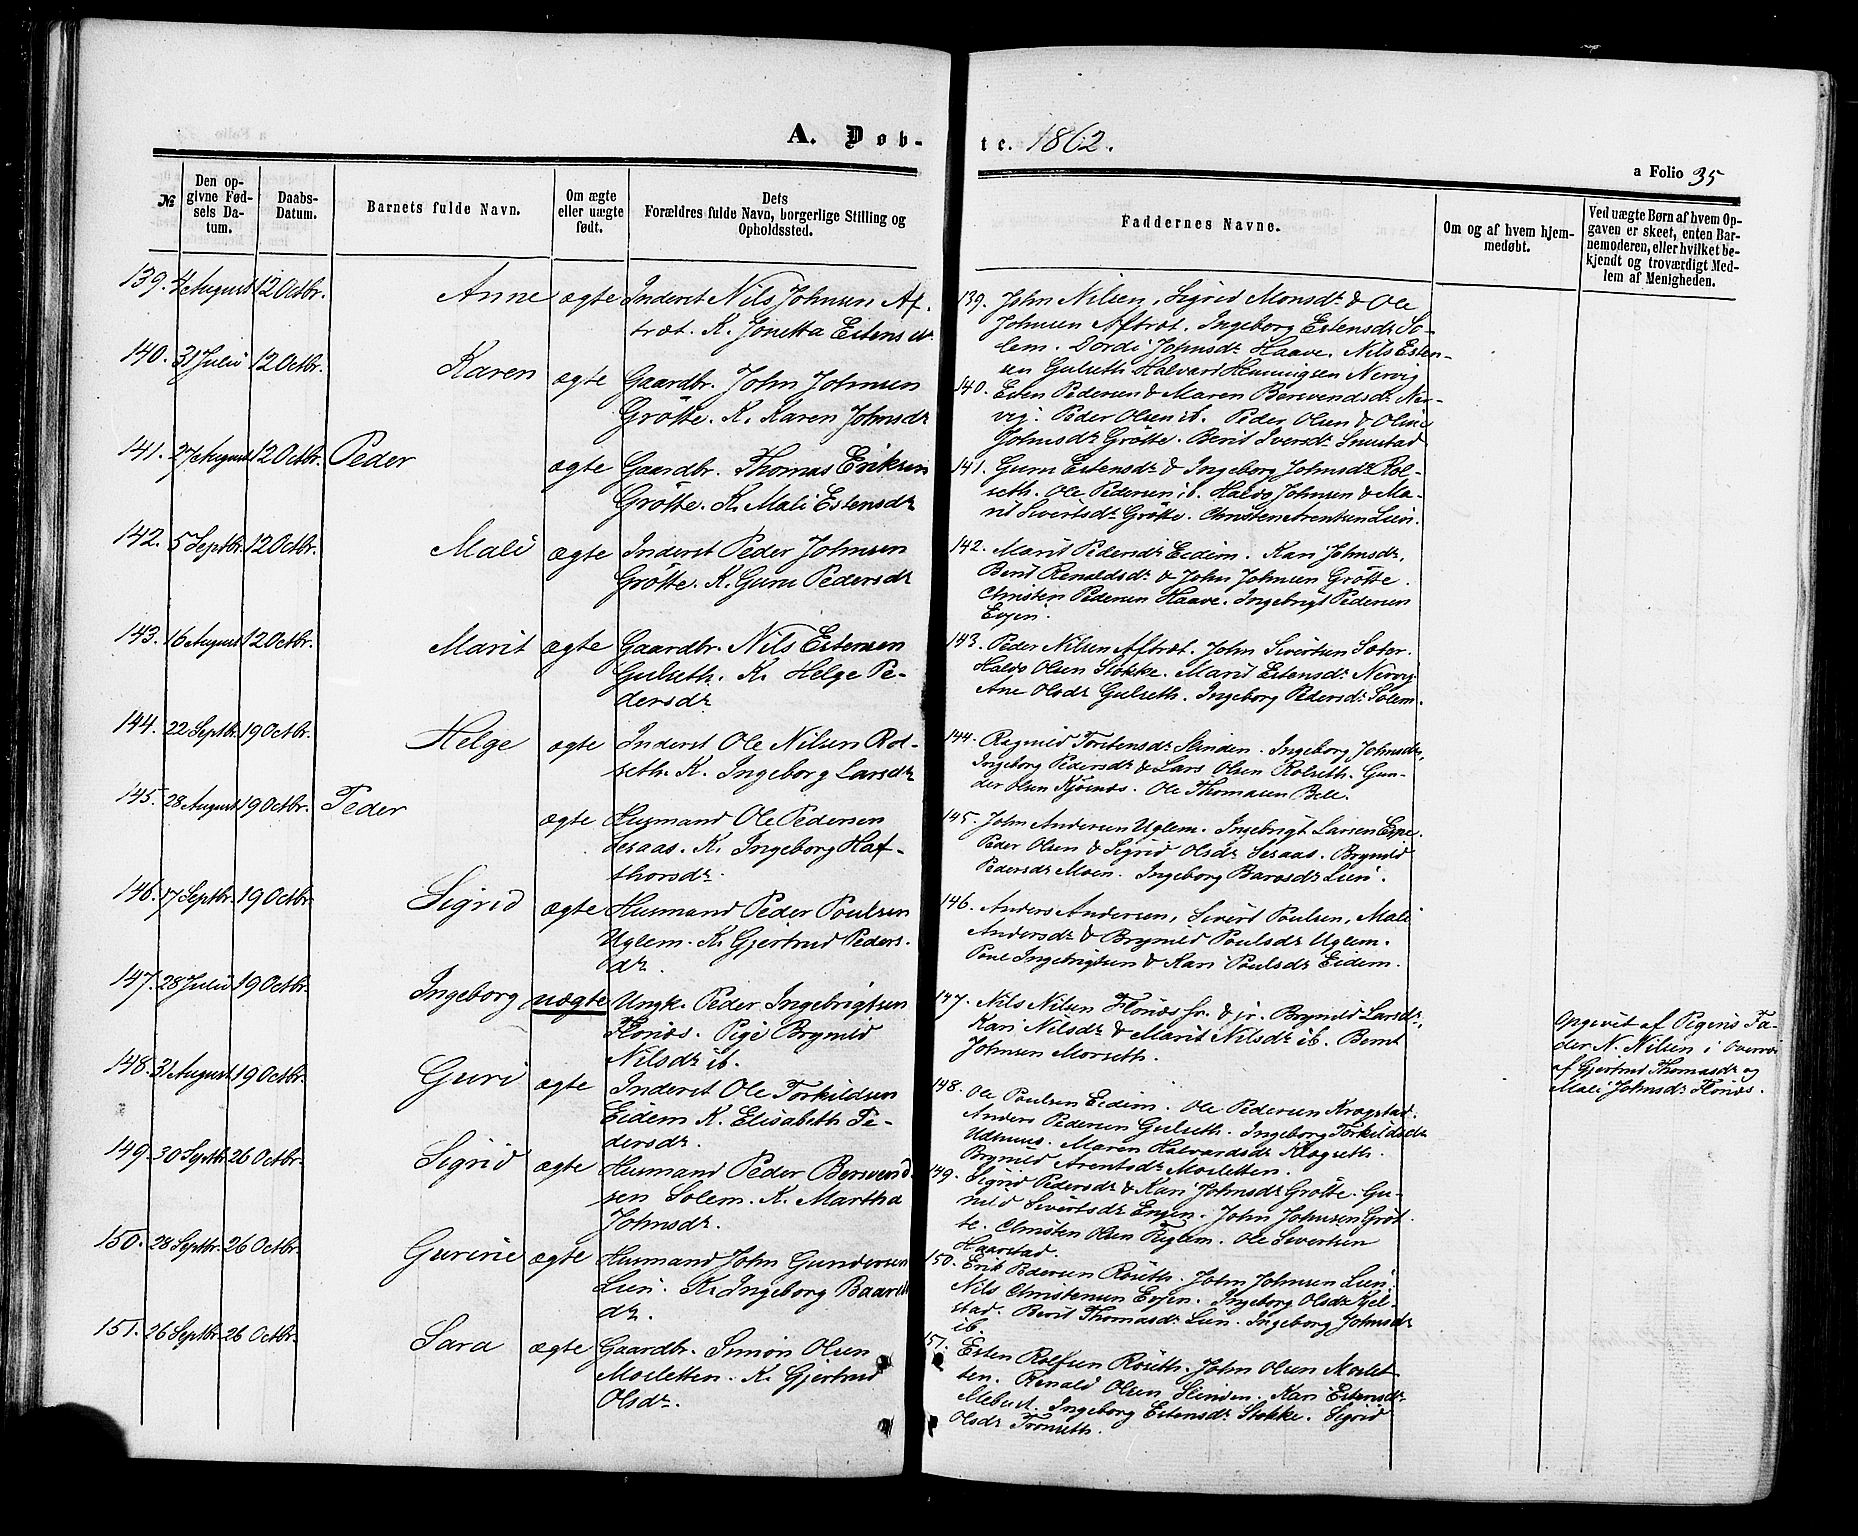 A. Døb-
te. 1862.
a Folio 35
№
Den op-
givne Fød-
sels Da-
tum.
Daabs-
Datum.
Barnets fulde Navn.
Om ægte
eller uægte
født.
Dets
Forældres fulde Navn, borgerlige Stilling og
Opholdssted.
Faddernes Navne.
Om og af hvem hjem-
medøbt.
Ved uægte Børn af hvem Op-
gaven er skeet, enten Bar-
nemoderen, eller hvilket be-
kjendt og troværdigt Med-
lem af Menigheden.
139. 4 August 12 Octbr. Anne ægte Inderst Nils Johnsen Af-
træt. K. Jonetta Estensdr
139. John Nilsen, Sigrid Monsdr & Ole
Johnsen Aftræt. Ingeborg Estensdr So-
lem. Dordi Johnsdr Haave. Nils Esten-
sen Gulseth Halvard Henningsen Nervig
140. 31 Julii 12 Octbr. Karen ægte Gaardbr. John Johnsen
Grøtte. K. Karen Johnsdr
140. Esten Pedersen & Maren Bersvendsdr Ner-
vig. Peder Olsen ib. Peder Olsen & Oline
Johnsdr Grøtte. Berit Iversdr Snustad
141. 27 August 12 Octbr. Peder ægte Gaardbr. Thomas Eriksen
Grøtte. K. Mali Estensdr
141. Guru Estensdr & Ingeborg Johnsdr Rol-
seth. Ole Pedersen ib. Haldo Johnsen & Ma-
rit Sivertsdr Grøtte. Christen Arentsen Lien.
142. 5 Septbr. 12 Octbr. Mali ægte Inderst Peder Johnsen
Grøtte. K. Guru Pedersdr
142. Marit Pedersdr Eidem. Kari Johnsdr,
Berit Renaldsdr & John Johnsen Grøtte.
Christen Pedersen Haave. Ingebrigt Pedersen
Evjen.
143. 16 August 12 Octbr. Marit ægte Gaardbr. Nils Estensen
Gulseth. K. Helge Pe-
dersdr
143. Peder Nilsen Aftræt. John Sivertsen Sæter.
Haldo Olsen Stokke. Marit Estensdr Nervig
Ane Olsdr Gulseth. Ingeborg Pedersdr Solem.
144. 22 Septbr. 19 Octbr. Helge ægte Inderst Ole Nilsen Rol-
seth. K. Ingeborg Larsdr
144. Ragnild Torstensdr Slinden. Ingeborg Johnsdr,
Ingeborg Pedersdr & Lars Olsen Rolseth. Gun-
der Olsen Kjøsnæs. Ole Thomasen Bell.
145. 28 August 19 Octbr. Peder ægte Husmand Ole Pedersen
Seraas. K. Ingeborg Haf-
thorsdr.
145. John Andersen Uglem. Ingebrigt Larsen Espe.
Peder Olsen & Sigrid Olsdr Seraas. Brynild
Pedersdr Moen. Ingeborg Barosdr Lien.
146. 17 Septbr. 19 Octbr. Sigrid ægte Husmand Peder Poulsen
Uglem. K. Gjertrud Peders-
dr.
146. Anders Andersen, Sivert Poulsen, Mali
Andersdr & Brynild Poulsdr Uglem.
Poul Ingebrigtsen & Kari Poulsdr Eidem.
147. 28 Julii 19 Octbr. Ingeborg uægte Ungk. Peder Ingebrigtsen
Flønæs. Pige Brynild
Nilsdr ib.
147. Nils Nilsen Flønæs sr. & jr. Brynild Larsdr,
Kari Nilsdr & Marit Nilsdr ib. Bernt
Johnsen Morseth.
Opgivet af Pigens Fa-
der N. Nilsen i Overvær
af Gjertrud Thomasdr og
Mali Johnsdr Flønæs.
148. 31 August 19 Octbr. Guri ægte Inderst Ole Torkildsen
Eidem K. Elisabeth Pe-
dersdr.
148. Ole Poulsen Eidem. Ole Pedersen Kragstad.
Anders Pedersen Gulseth. Ingeborg Torkildsdr
Udthuus. Maren Halvardsdr Klegseth.
Brynild Arentsdr Mosletten.
149. 30 Septbr. 26 Octbr. Sigrid ægte Husmand Peder Bersvend-
sen Solem. K. Martha
Johnsdr.
149. Sigrid Pedersdr & Kari Johnsdr Grøtte. Gu-
nild Sivertsdr Engen. John Johnsen Grøt-
te. Christen Olsen Fuglem. Ole Sivertsen
Haarstad.
150. 28 Septbr. 26 Octbr. Gurine ægte Husmand John Gundersen
Lien. K. Ingeborg Baards-
dr.
150. Erik Pedersen Røseth. John Johnsen Lien.
Nils Christensen Evjen. Ingeborg Olsdr Kjel-
stad. Berit Thomasdr Lien. Ingeborg Johnsdr
ib.
151. 26 Septbr. 26 Octbr. Sara ægte Gaardbr. Simon Olsen
Mosletten. K. Gjertrud
Olsdr.
151. Esten Rolfsen Røseth. John Olsen Moslet-
ten. Renald Olsen Slinden. Kari Estensdr
Mebust. Ingeborg Estensdr Stokke. Sigrid
Olsdr Tronseth.